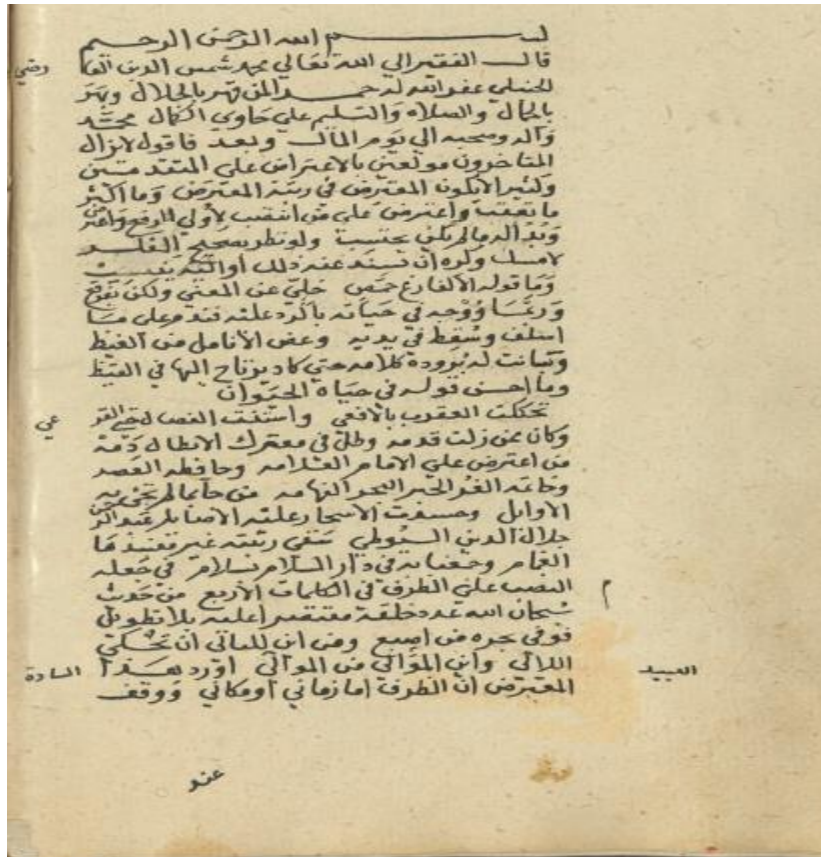 بسم الله الرحمن الرحيم
قال الفقير الي الله تعالي محمد شمس الدين
رضي
الحنبلي عفو الله له حمد المن قهر بالجلال وبهر
بالجمال والصلاه والتسليم علي حاوي الكمال محمد
وآله وصحبه الي يوم المآل وبعد فاقول لا تزال
المتاخرون مولعين بالاعتراض علي المتقدمين
وكثير الايكون المعترض في رتبة المعترض وما اكثر
ما تعقب واعترض علي من انتصب لاولي الرفع
وبدا له مالم يكن يحتسب ولو نظر بصحيح الفكر
لامسك وكره ان تسند عنه ذلك او اليه ينسب
وما قوله الا فارغ حمص خلي عن المعني ولكن يفرقع
وربما ووجه في حياته بالرد عليه فندم علي ما
اسلف وسقط في يديه وعض الانامل من الغيظ
وتبانت له برودة كلامه حتي كاد يرتاح اليها في القيظ
وما احسن قوله في حياة الحيوان
تحككت العقرب بالافعي واستنت الفصال حتي القر
عي
وكان ممن زلت قدمه وطل في معترك الابطال دمه
من اعترض علي الامام العلامه وحافظه العصر
وخاتمه الغر الحبر البحر الفهامه من حآ بمالم تجئ به
الاوايل وحسدت الاسحار عليه الاصايل
جلال الدين السيوطي سقي ربعه غير مفسدها
الغمام وجمعنا به في دار السلام بسلام في جعله
النصب علي الظرف في الكلمات الاربع من حديث
سبحان الله عدد خلقه مفتقرا عليه بلا تطويل
فوقي حجره من اصبع ومن اين للباتي ان يحكي
اللالي واين الموالي من الموالي اورد بعد هذا
العبيد
السادة
المعترض ان الظرف اما زماني او مكاني ووقف
عند